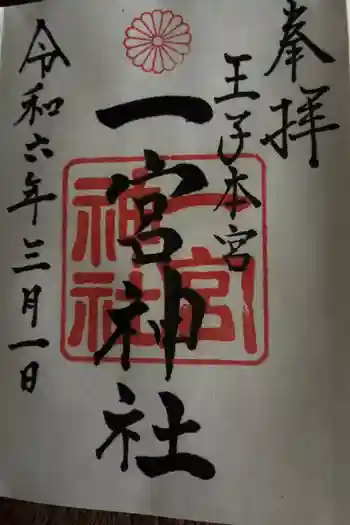 奉拝
王子本宮
一宮神社
一宮
神社
令和六年三月一日